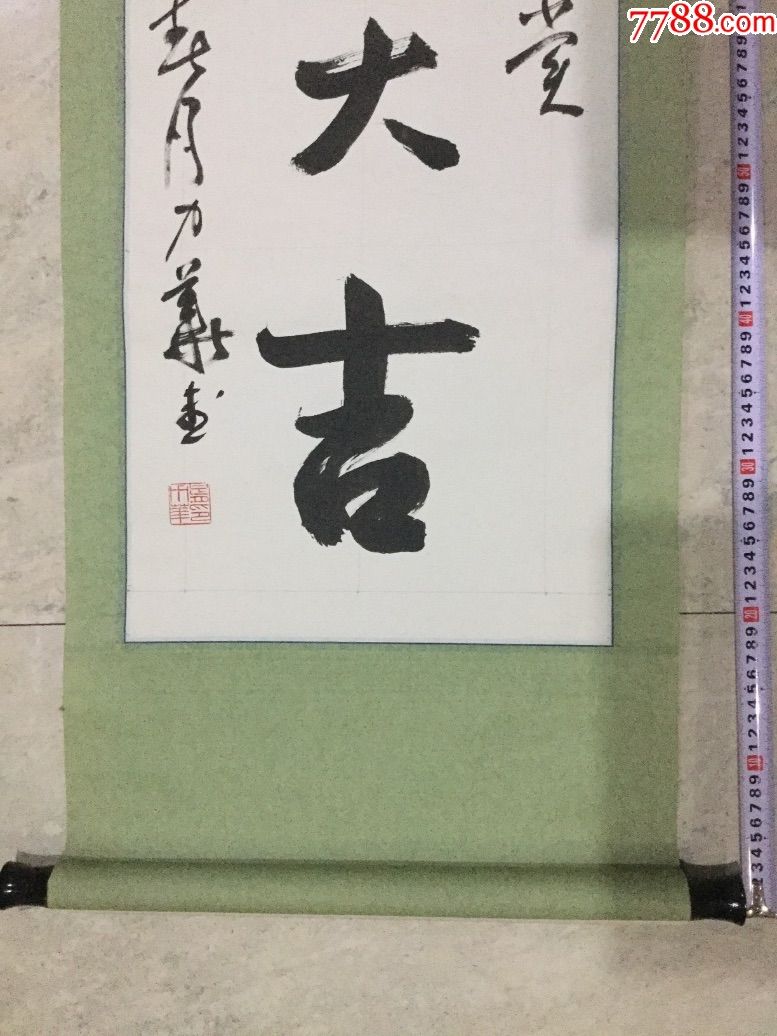 7788.com
大吉
春月力華書
23456789 10 123456789 20 123456789 30 123456789 40 123456789 50 123456789